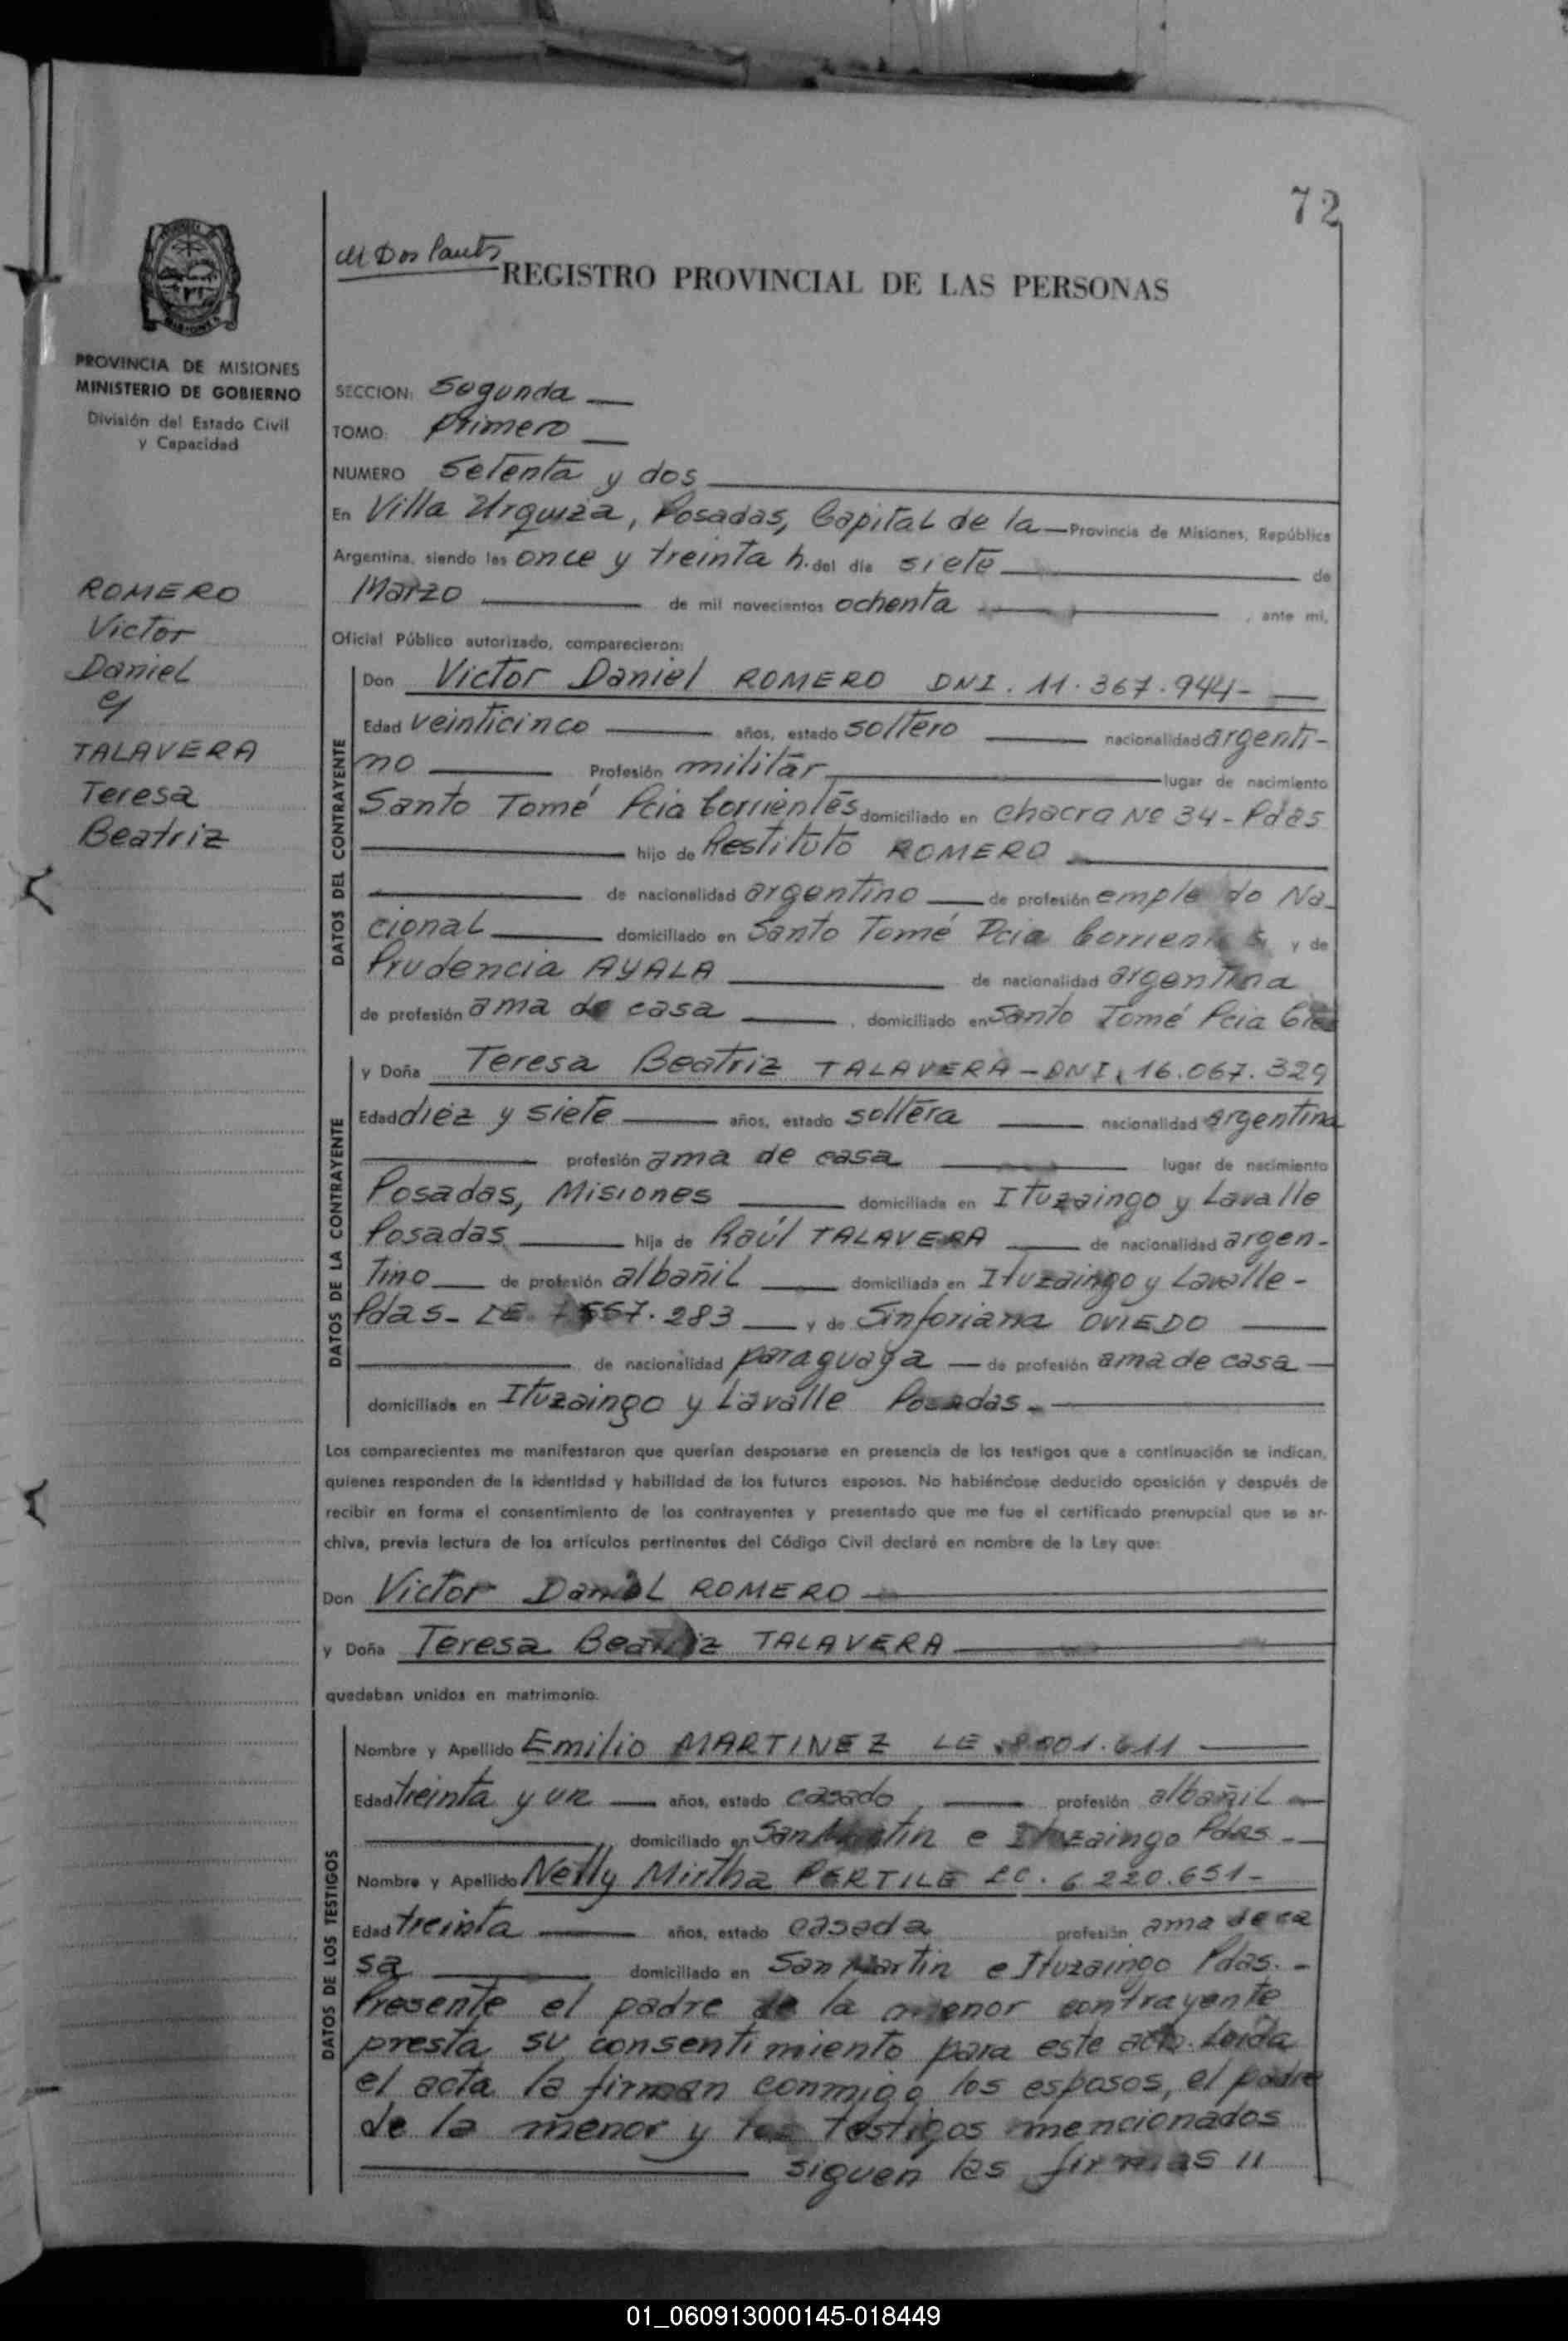 72
REGISTRO PROVINCIAL DE LAS PERSONAS
PROVINCIA DE MISIONES
MINISTERIO DE GOBIERNO
División del Estado Civil
y Capacidad
ROMERO
Victor
Daniel
y
TALAVERA
Teresa
Beatriz
SECCION: Segunda
TOMO: Primero
NUMERO Setenta y dos
En Villa Urquiza, Posadas, Capital de la Provincia de Misiones, República
Argentina, siendo las once y treinta h. del día siete de
Marzo de mil novecientos ochenta, ante mí,
Oficial Público autorizado, comparecieron:
DATOS DEL CONTRAYENTE
Don Victor Daniel ROMERO DNI. 11.367.944-
Edad veinticinco años, estado soltero nacionalidad argenti-
no Profesión militar lugar de nacimiento
Santo Tomé Pcia Corrientes domiciliado en chacra Nº 34 - Pdas
hijo de Restituto ROMERO
de nacionalidad argentino de profesión empleado Na-
cional domiciliado en Santo Tomé Pcia Corrientes y de
Prudencia AYALA de nacionalidad argentina
de profesión ama de casa, domiciliado en Santo Tomé Pcia
DATOS DE LA CONTRAYENTE
y Doña Teresa Beatriz TALAVERA - DNI. 16.067.329
Edad diez y siete años, estado soltera nacionalidad argentina
profesión ama de casa lugar de nacimiento
Posadas, Misiones domiciliada en Ituzaingo y Lavalle
Posadas hija de Raúl TALAVERA de nacionalidad argen-
tino de profesión albañil domiciliada en Ituzaingo y Lavalle -
Pdas - LE. y de Sinforiana OVIEDO
de nacionalidad paraguaya de profesión ama de casa
domiciliada en Ituzaingo y Lavalle Posadas.-
Los comparecientes me manifestaron que querían desposarse en presencia de los testigos que a continuación se indican,
quienes responden de la identidad y habilidad de los futuros esposos. No habiéndose deducido oposición y después de
recibir en forma el consentimiento de los contrayentes y presentado que me fue el certificado prenupcial que se ar-
chiva, previa lectura de los artículos pertinentes del Código Civil declaré en nombre de la Ley que:
Don Victor Daniel ROMERO
y Doña Teresa Beatriz TALAVERA
quedaban unidos en matrimonio.
DATOS DE LOS TESTIGOS
Nombre y Apellido Emilio MARTINEZ LE
Edad treinta y un años, estado casado, profesión albañil
domiciliado en San Martin e Ituzaingo Pdas.-
Nombre y Apellido Nelly Mirtha PERTILE LC. 6.220.651-
Edad treinta años, estado casada profesión ama de ca
sa domiciliado en San Martin e Ituzaingo Pdas.-
Presente el padre de la menor contrayente
presta su consentimiento para este acto. Leida
el acta la firman conmigo los esposos, el padre
de la menor y los testigos mencionados
siguen las firmas //
01_060913000145-018449